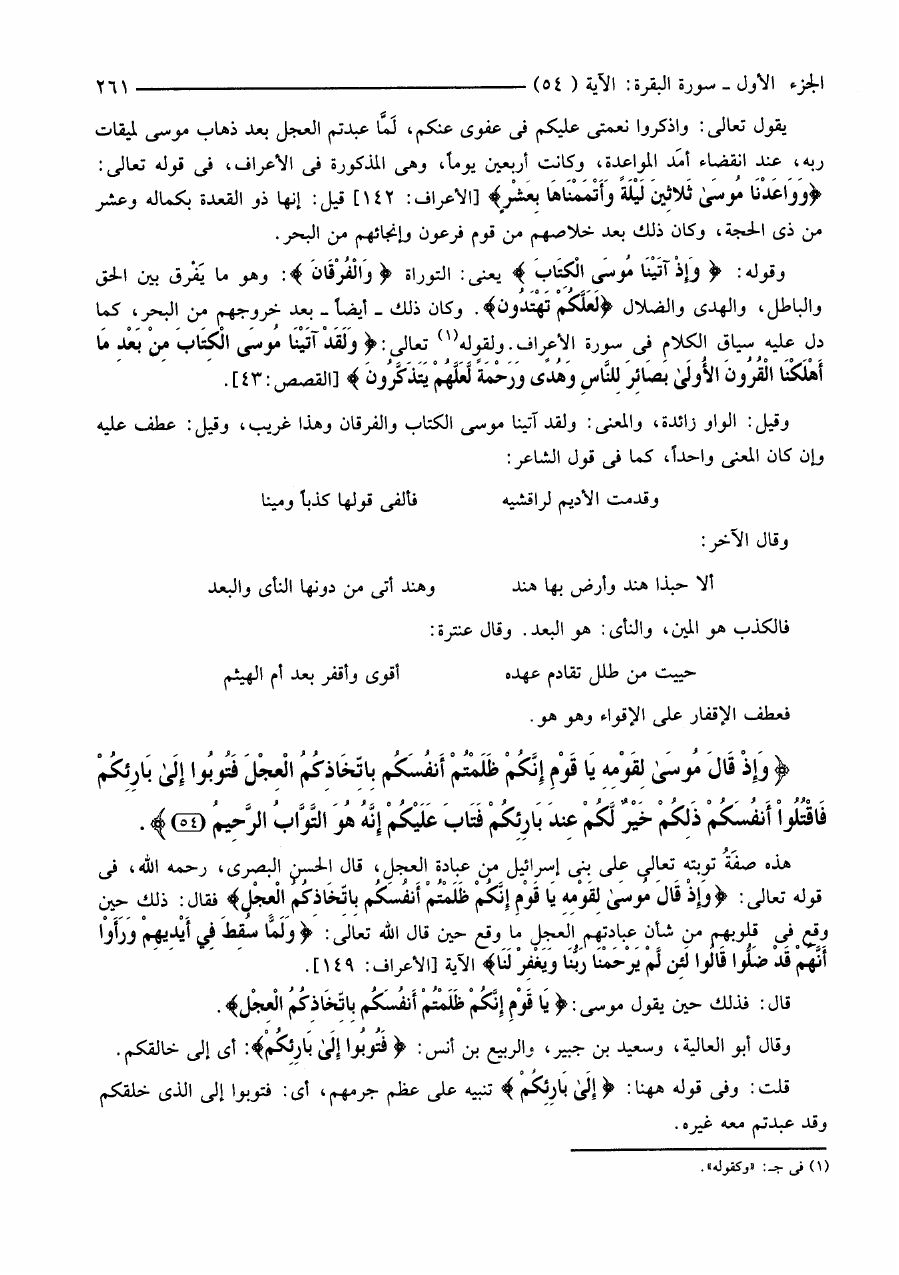 الجزء الأول ـ سورة البقرة: الآية ( ٥٤) ٢٦١
يقول تعالى: واذكروا نعمتى عليكم فى عفوى عنكم، لَمَّا عبدتم العجل بعد ذهاب موسى لميقات
ربه، عند انقضاء أمَد المواعدة، وكانت أربعين يوماً، وهى المذكورة فى الأعراف، فى قوله تعالى:
﴿وَوَاعَدْنَا مُوسَىٰ ثَلاثِينَ لَيْلَةً وَأَتْمَمْنَاهَا بِعَشْرٍ﴾ [الأعراف: ١٤٢] قيل: إنها ذو القعدة بكماله وعشر
من ذى الحجة، وكان ذلك بعد خلاصهم من قوم فرعون وإنجائهم من البحر.
وقوله: ﴿ وَإِذْ آتَيْنَا مُوسَى الْكِتَابَ ﴾ يعنى: التوراة ﴿ وَالْفُرْقَانَ ﴾: وهو ما يَفْرق بين الحق
والباطل، والهدى والضلال ﴿لَعَلَّكُمْ تَهْتَدُونَ﴾. وكان ذلك ـ أيضاً ـ بعد خروجهم من البحر، كما
دل عليه سياق الكلام فى سورة الأعراف. ولقوله(١) تعالى:﴿ وَلَقَدْ آتَيْنَا مُوسَى الْكِتَابَ مِنْ بَعْدِ مَا
أَهْلَكْنَا الْقُرُونَ الأُولَىٰ بَصَائِرَ لِلنَّاسِ وَهُدًى وَرَحْمَةً لَعَلَّهُمْ يَتَذَكَّرُونَ ﴾ [القصص:٤٣].
وقيل: الواو زائدة، والمعنى: ولقد آتينا موسى الكتاب والفرقان وهذا غريب، وقيل: عطف عليه
وإن كان المعنى واحداً، كما فى قول الشاعر:
وقدمت الأديم لراقشيه فألفى قولها كذباً ومينا
وقال الآخر:
ألا حبذا هند وأرض بها هند وهند أتى من دونها النأى والبعد
فالكذب هو المين، والنأى: هو البعد. وقال عنترة:
حييت من طلل تقادم عهده أقوى وأقفر بعد أم الهيثم
فعطف الإقفار على الإقواء وهو هو.
﴿ وَإِذْ قَالَ مُوسَىٰ لِقَوْمِهِ يَا قَوْمِ إِنَّكُمْ ظَلَمْتُمْ أَنفُسَكُم بِاتِّخَاذِكُمُ الْعِجْلَ فَتُوبُوا إِلَىٰ بَارِئِكُمْ
فَاقْتُلُوا أَنفُسَكُمْ ذَلِكُمْ خَيْرٌ لَّكُمْ عِندَ بَارِئِكُمْ فَتَابَ عَلَيْكُمْ إِنَّهُ هُوَ التَّوَّابُ الرَّحِيمُ (٥٤)﴾ .
هذه صفَةُ توبته تعالى على بنى إسرائيل من عبادة العجل، قال الحسن البصرى، رحمه الله، فى
قوله تعالى: ﴿وَإِذْ قَالَ مُوسَىٰ لِقَوْمِهِ يَا قَوْمِ إِنَّكُمْ ظَلَمْتُمْ أَنفُسَكُم بِاتِّخَاذِكُمُ الْعِجْلَ﴾ فقال: ذلك حين
وقع فى قلوبهم من شأن عبادتهم العجل ما وقع حين قال الله تعالى: ﴿ وَلَمَّا سُقِطَ فِي أَيْدِيهِمْ وَرَأَوْا
أَنَّهُمْ قَدْ ضَلُّوا قَالُوا لَئِن لَّمْ يَرْحَمْنَا رَبُّنَا وَيَغْفِرْ لَنَا﴾ الآية [الأعراف: ١٤٩].
قال: فذلك حين يقول موسى:﴿ يَا قَوْمِ إِنَّكُمْ ظَلَمْتُمْ أَنفُسَكُم بِاتِّخَاذِكُمُ الْعِجْلَ﴾.
وقال أبو العالية، وسعيد بن جبير، والربيع بن أنس: ﴿ فَتُوبُوا إِلَىٰ بَارِئِكُمْ﴾: أى إلى خالقكم.
قلت: وفى قوله ههنا: ﴿ إِلَىٰ بَارِئِكُمْ ﴾ تنبيه على عظم جرمهم، أى: فتوبوا إلى الذى خلقكم
وقد عبدتم معه غيره.
(١) فى جـ: «وكقوله».